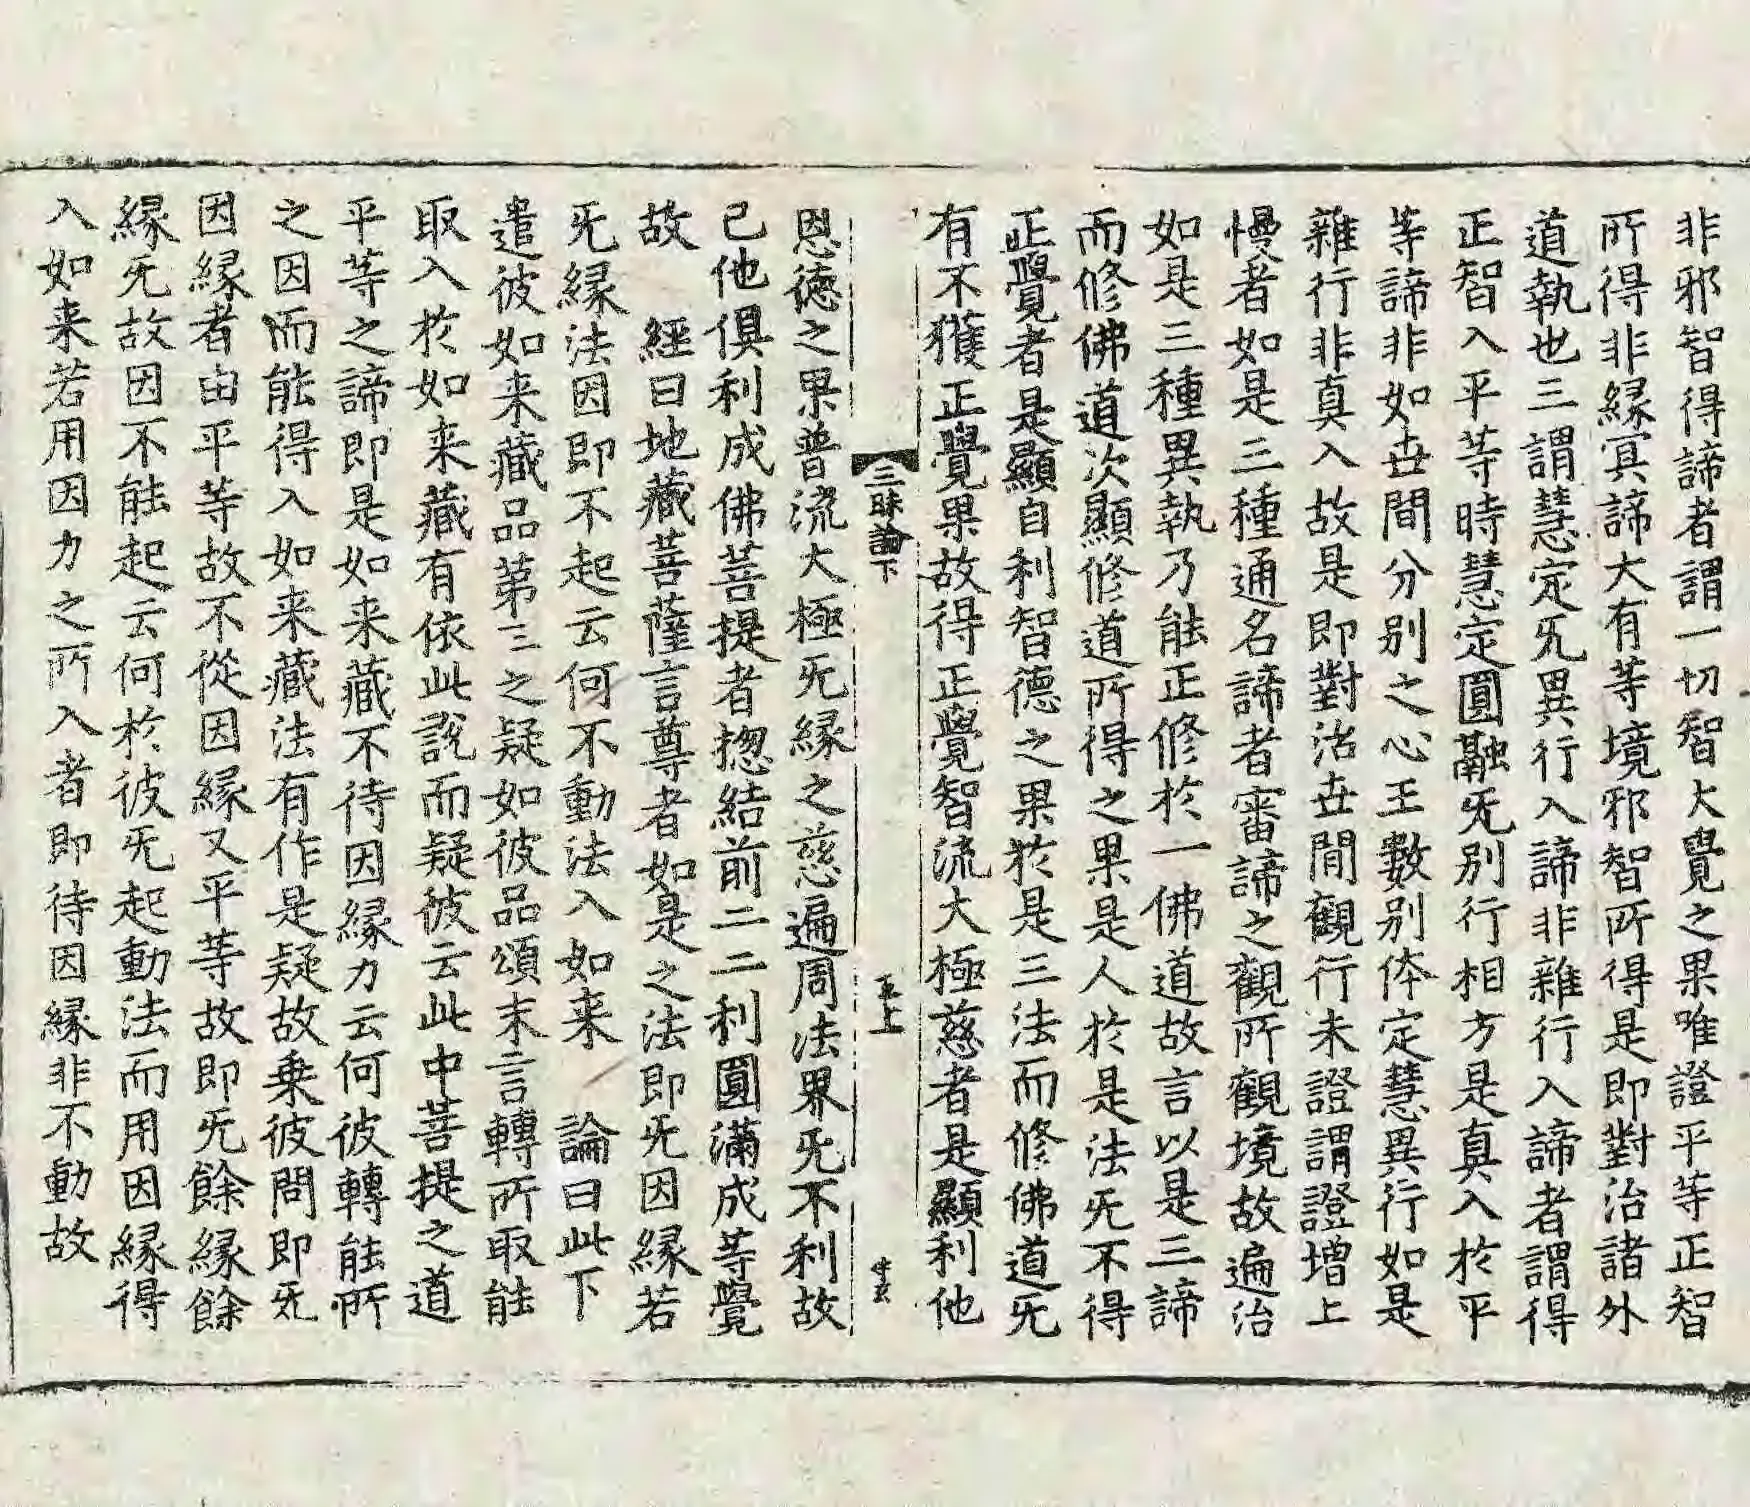 非邪智得諦者謂一切智大覺之果唯證平等正智
所得非緣冥諦大有等境邪智所得是即對治諸外
道執也三謂慧定无異行入諦非雜行入諦者謂得
正智入平等時慧定圓融旡別行相方是真入於平
等諦非如世間分別之心王數別体定慧異行如是
雜行非真入故是即對治世間觀行未證謂證增上
慢者如是三種通名諦者審諦之觀所觀境故遍治
如是三種異執乃能正修於一佛道故言以是三諦
而修佛道次顯修道所得之果是人於是法旡不得
正覺者是顯自利智德之果於是三法而修佛道旡
有不獲正覺果故得正覺智流大極慈者是顯利他
三昧論下
五上
恩德之果普流大極旡緣之慈遍周法界旡不利故
己他俱利成佛菩提者揔結前二二利圓滿成等覺
故　經曰地藏菩薩言尊者如是之法即旡因緣若
旡緣法因即不起云何不動法入如来　論曰此下
遣彼如来藏品第三之疑如彼品頌末言轉所取能
取入於如来藏有依此說而疑彼云此中菩提之道
平等之諦即是如来藏不待因緣力云何彼轉能所
之因而能得入如来藏法有作是疑故乗彼問即旡
因緣者由平等故不從因緣又平等故即旡餘緣餘
緣旡故因不能起云何於彼旡起動法而用因緣得
入如来若用因力之所入者即待因緣非不動故